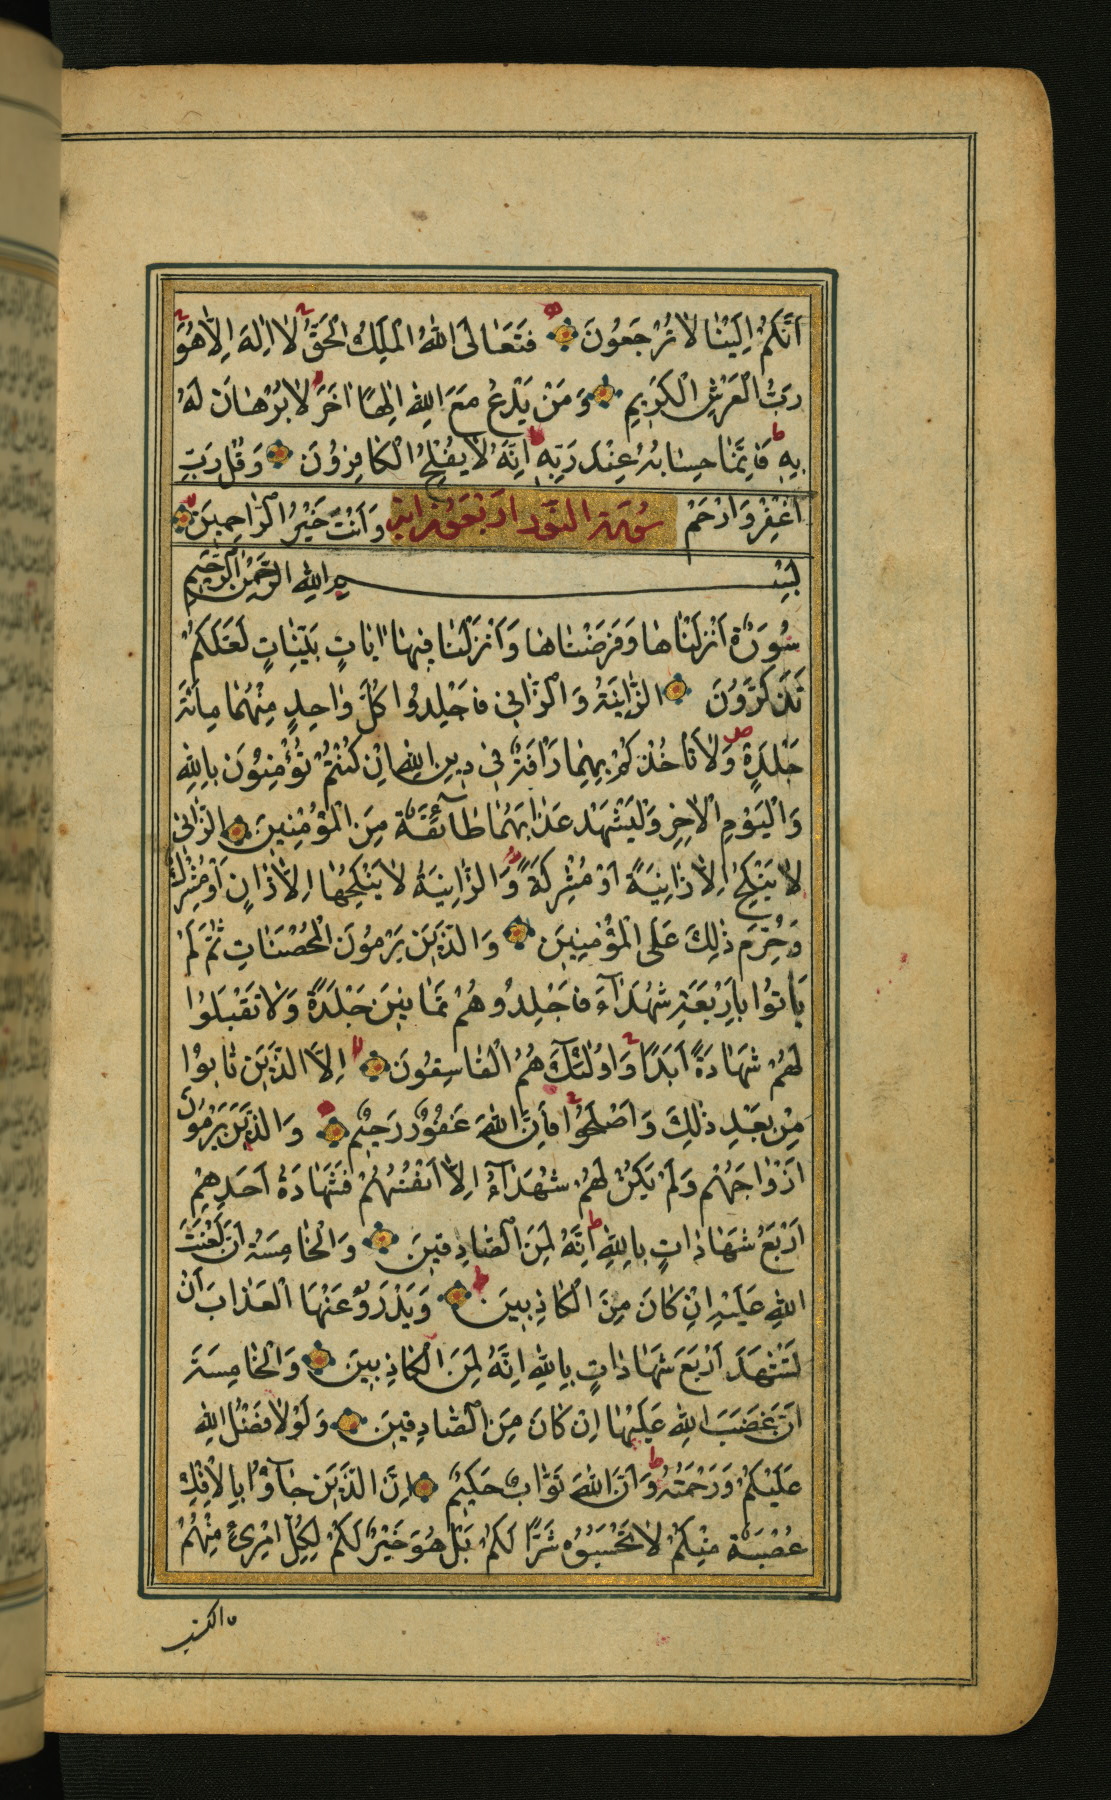 اَنَّكُمْ اِلَيْنَا لَا تُرْجَعُونَ فَتَعَالَى اللهُ الْمَلِكُ الْحَقُّ لَا اِلٰهَ اِلَّا هُوَ
رَبُّ الْعَرْشِ الْكَرِيمِ وَمَنْ يَدْعُ مَعَ اللهِ اِلٰهًا اٰخَرَ لَا بُرْهَانَ لَهُ
بِهِ فَاِنَّمَا حِسَابُهُ عِنْدَ رَبِّهِ اِنَّهُ لَا يُفْلِحُ الْكَافِرُونَ وَقُلْ رَبِّ
اغْفِرْ وَارْحَمْ وَاَنْتَ خَيْرُ الرَّاحِمِينَ
سورة النور
بِسْمِ اللهِ الرَّحْمٰنِ الرَّحِيمِ
سُورَةٌ اَنْزَلْنَاهَا وَفَرَضْنَاهَا وَاَنْزَلْنَا فِيهَا اٰيَاتٍ بَيِّنَاتٍ لَعَلَّكُمْ
تَذَكَّرُونَ الزَّانِيَةُ وَالزَّانِي فَاجْلِدُوا كُلَّ وَاحِدٍ مِنْهُمَا مِائَةَ
جَلْدَةٍ وَلَا تَأْخُذْكُمْ بِهِمَا رَأْفَةٌ فِي دِينِ اللهِ اِنْ كُنْتُمْ تُؤْمِنُونَ بِاللهِ
وَالْيَوْمِ الْاٰخِرِ وَلْيَشْهَدْ عَذَابَهُمَا طَآئِفَةٌ مِنَ الْمُؤْمِنِينَ الزَّانِي
لَا يَنْكِحُ اِلَّا زَانِيَةً اَوْ مُشْرِكَةً وَالزَّانِيَةُ لَا يَنْكِحُهَا اِلَّا زَانٍ اَوْ مُشْرِكٌ
وَحُرِّمَ ذٰلِكَ عَلَى الْمُؤْمِنِينَ وَالَّذِينَ يَرْمُونَ الْمُحْصَنَاتِ ثُمَّ لَمْ
يَأْتُوا بِاَرْبَعَةِ شُهَدَآءَ فَاجْلِدُوهُمْ ثَمَانِينَ جَلْدَةً وَلَا تَقْبَلُوا
لَهُمْ شَهَادَةً اَبَدًا وَاُولٰئِكَ هُمُ الْفَاسِقُونَ اِلَّا الَّذِينَ تَابُوا
مِنْ بَعْدِ ذٰلِكَ وَاَصْلَحُوا فَاِنَّ اللهَ غَفُورٌ رَحِيمٌ وَالَّذِينَ يَرْمُونَ
اَزْوَاجَهُمْ وَلَمْ يَكُنْ لَهُمْ شُهَدَآءُ اِلَّا اَنْفُسُهُمْ فَشَهَادَةُ اَحَدِهِمْ
اَرْبَعُ شَهَادَاتٍ بِاللهِ اِنَّهُ لَمِنَ الصَّادِقِينَ وَالْخَامِسَةُ اَنَّ لَعْنَتَ
اللهِ عَلَيْهِ اِنْ كَانَ مِنَ الْكَاذِبِينَ وَيَدْرَؤُا عَنْهَا الْعَذَابَ اَنْ
تَشْهَدَ اَرْبَعَ شَهَادَاتٍ بِاللهِ اِنَّهُ لَمِنَ الْكَاذِبِينَ وَالْخَامِسَةَ
اَنَّ غَضَبَ اللهِ عَلَيْهَا اِنْ كَانَ مِنَ الصَّادِقِينَ وَلَوْلَا فَضْلُ اللهِ
عَلَيْكُمْ وَرَحْمَتُهُ وَاَنَّ اللهَ تَوَّابٌ حَكِيمٌ اِنَّ الَّذِينَ جَآؤُا بِالْاِفْكِ
عُصْبَةٌ مِنْكُمْ لَا تَحْسَبُوهُ شَرًّا لَكُمْ بَلْ هُوَ خَيْرٌ لَكُمْ لِكُلِّ امْرِئٍ مِنْهُمْ